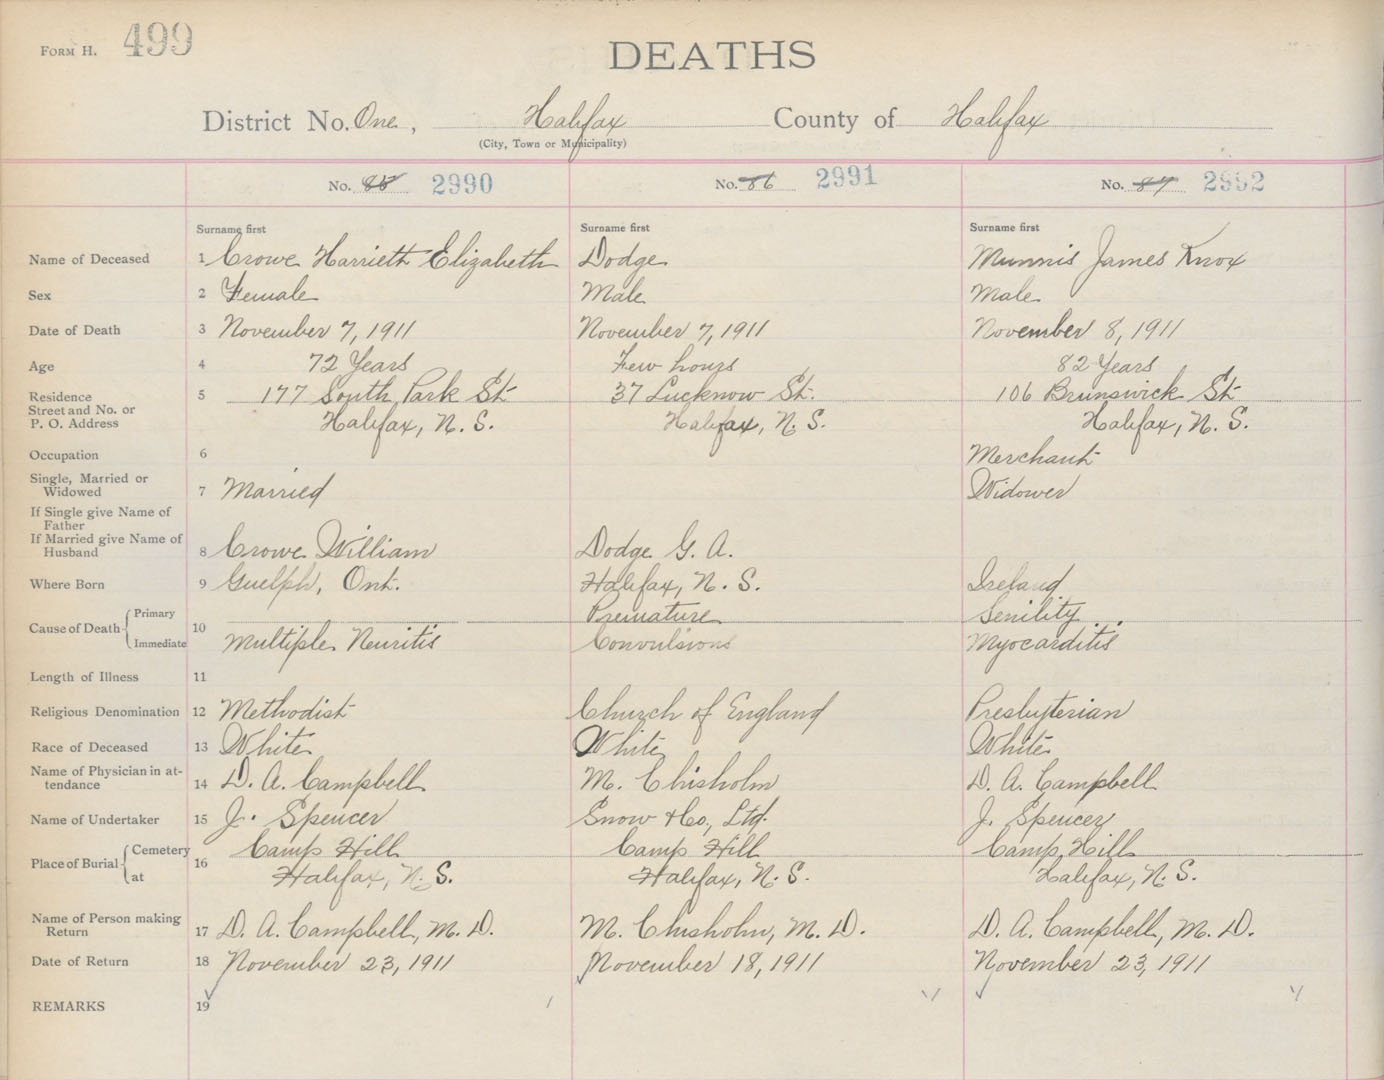 FORM H. 499
DEATHS
District No. One, Halifax County of Halifax
(City, Town or Municipality)
No. 85 2990 No. 86 2991 No. 87 2992
Surname first Surname first Surname first
Name of Deceased 1 Crowe Harrieth Elizabeth Dodge Munnis James Knox
Sex 2 Female Male Male
Date of Death 3 November 7, 1911 November 7, 1911 November 8, 1911
Age 4 72 Years Few hours 82 Years
Residence 5 177 South Park St. 37 Lucknow St. 106 Brunswick St.
Street and No. or
P. O. Address Halifax, N. S. Halifax, N. S. Halifax, N. S.
Occupation 6 Merchant
Single, Married or
Widowed 7 Married Widower
If Single give Name of
Father
If Married give Name of
Husband 8 Crowe William Dodge G. A.
Where Born 9 Guelph, Ont. Halifax, N. S. Ireland
Cause of Death Primary 10 Premature Senility
Immediate Multiple Neuritis Convulsions Myocarditis
Length of Illness 11
Religious Denomination 12 Methodist Church of England Presbyterian
Race of Deceased 13 White White White
Name of Physician in at-
tendance 14 D. A. Campbell M. Chisholm D. A. Campbell
Name of Undertaker 15 J. Spencer Snow & Co., Ltd. J. Spencer
Place of Burial Cemetery 16 Camp Hill Camp Hill Camp Hill
at Halifax, N. S. Halifax, N. S. Halifax, N. S.
Name of Person making
Return 17 D. A. Campbell, M. D. M. Chisholm, M. D. D. A. Campbell, M. D.
Date of Return 18 November 23, 1911 November 18, 1911 November 23, 1911
REMARKS 19